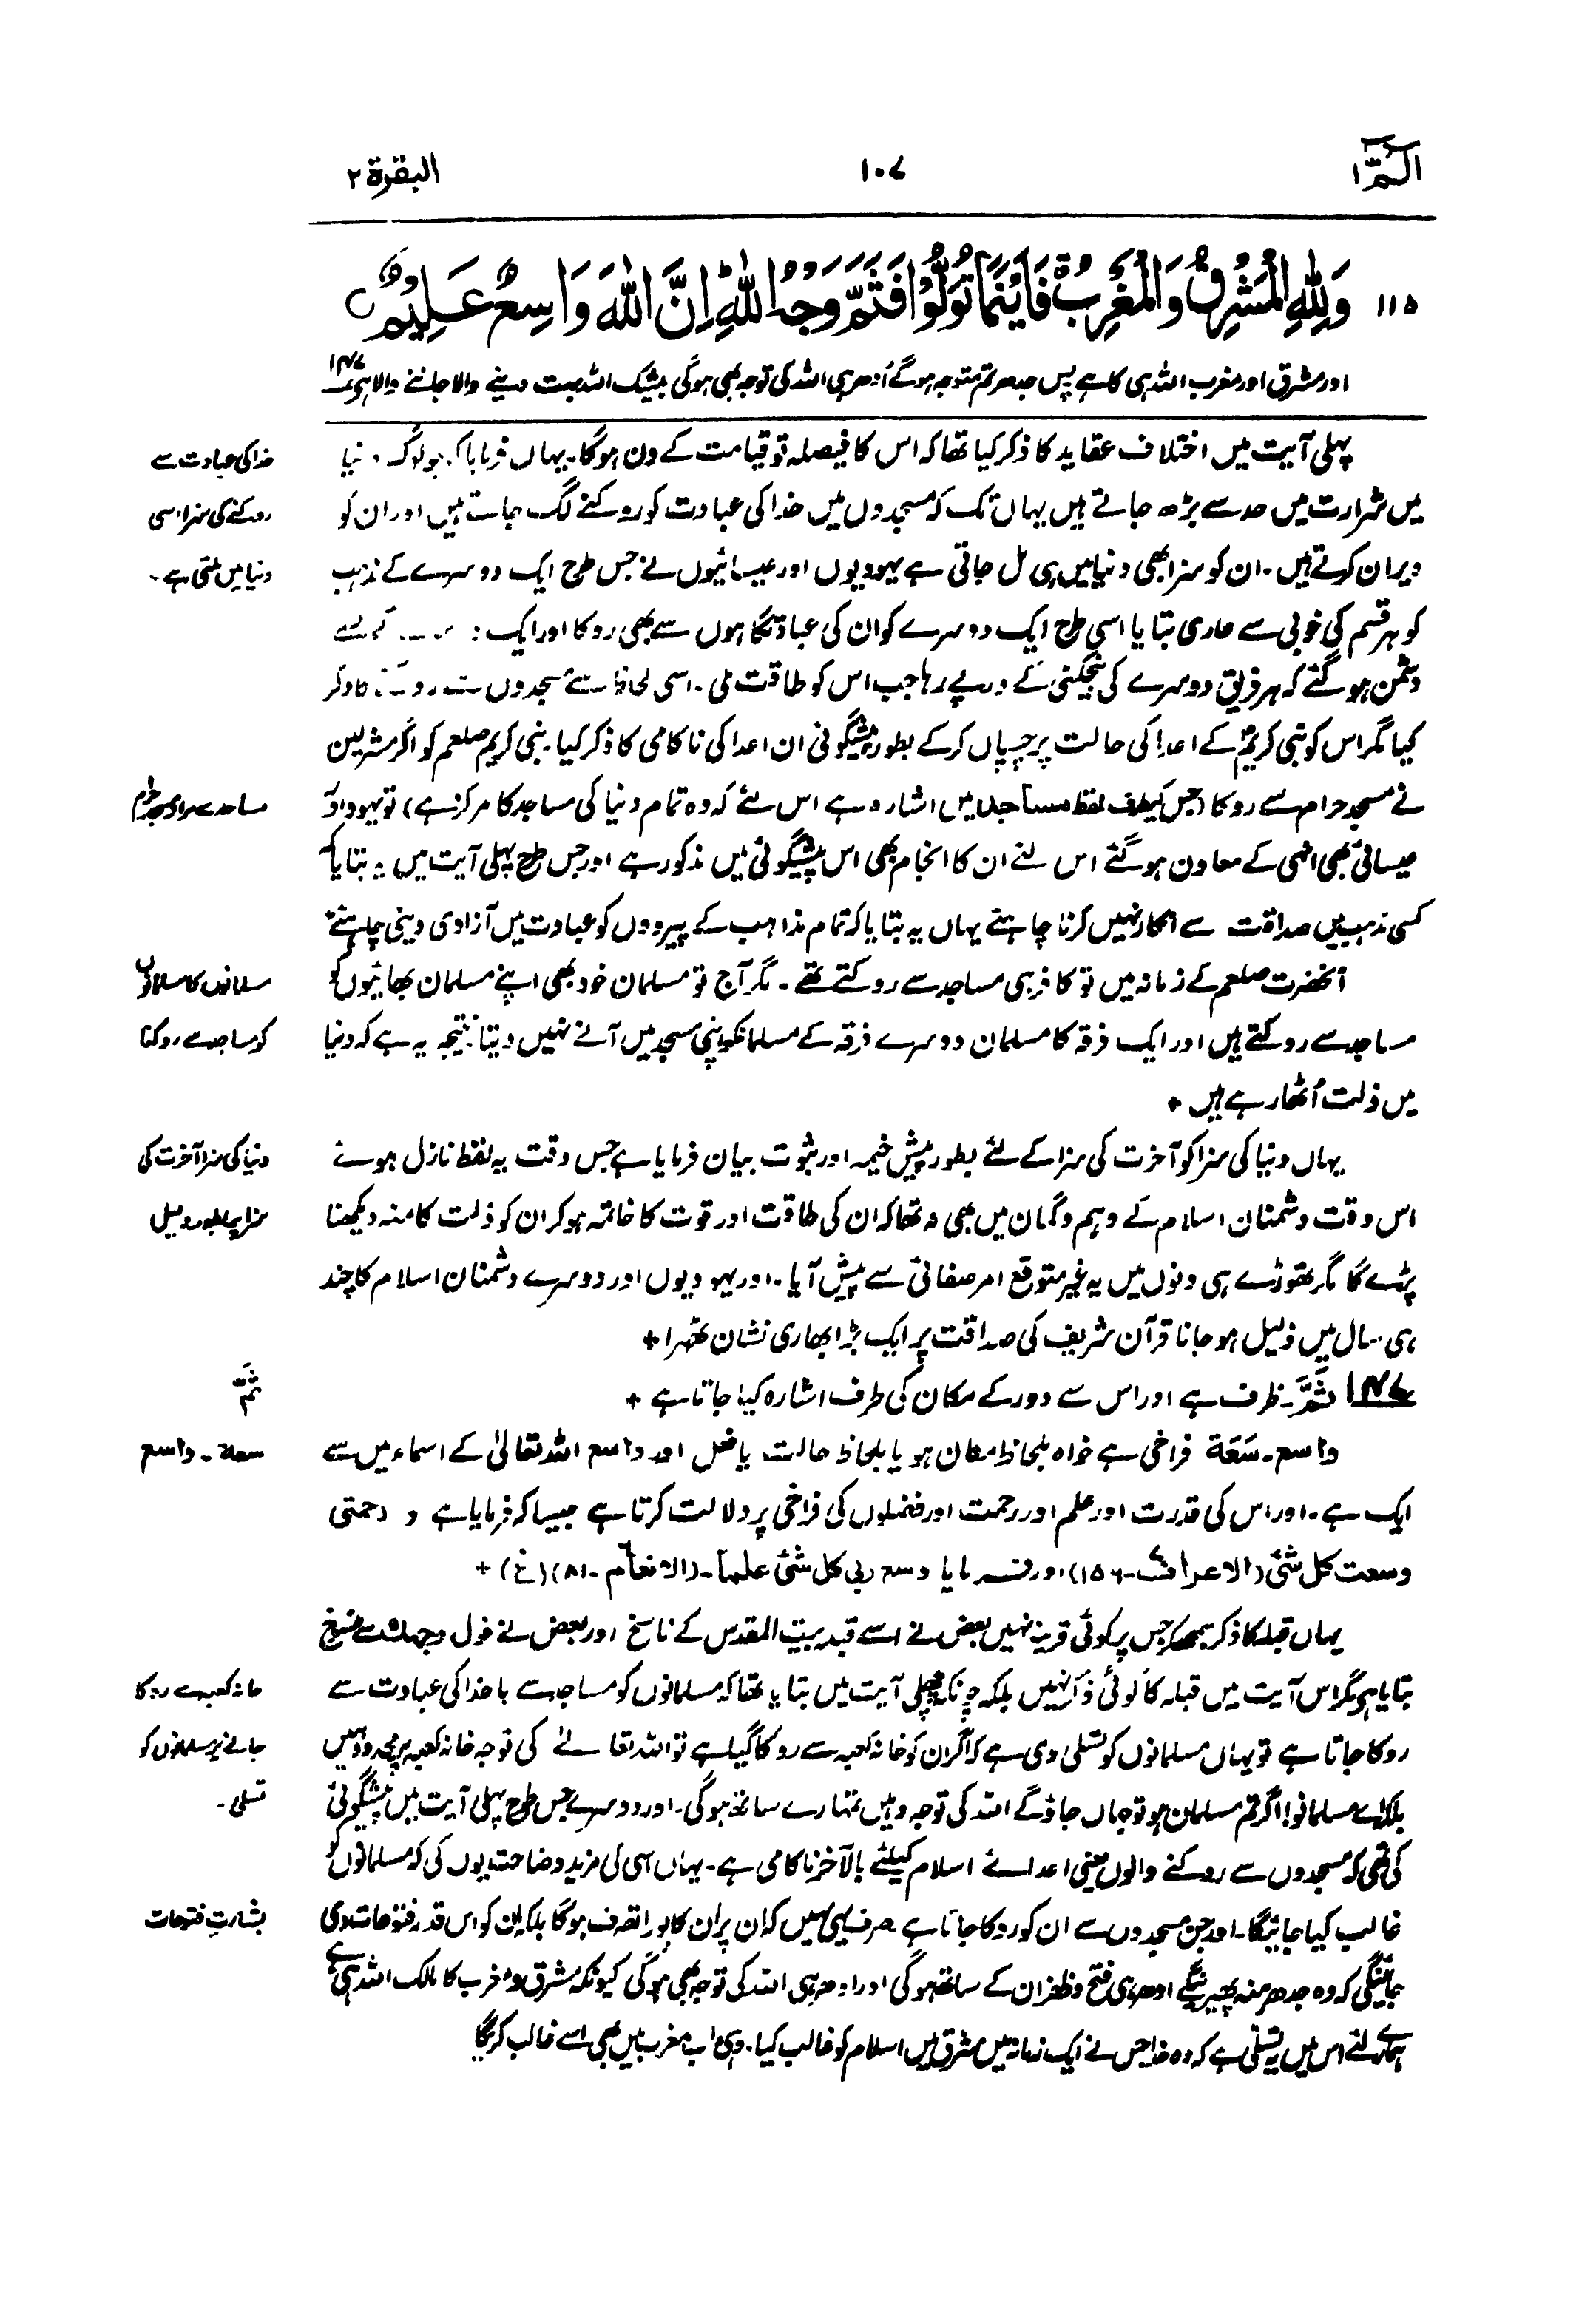 الٓمّٓ ١
١٠٧
البقرۃ ٢
١١٥ وَلِلّٰهِ الْمَشْرِقُ وَالْمَغْرِبُ فَاَيْنَمَا تُوَلُّوْا فَثَمَّ وَجْهُ اللّٰهِ اِنَّ اللّٰهَ وَاسِعٌ عَلِيْمٌ
اور مشرق اور مغرب اللہ ہی کا ہے پس جدھر تم متوجہ ہوگے اُدھر ہی اللہ کی توجہ بھی ہوگی بیشک اللہ بہت دینے والا جاننے والا ہے ۱۴۷
پہلی آیت میں اختلاف عقاید کا ذکر کیا تھا کہ اس کا فیصلہ تو قیامت کے دن ہوگا۔ یہاں فرمایا کہ جو لوگ دنیا
خدا کی عبادت سے
میں شرارت میں حد سے بڑھ جاتے ہیں یہاں تک کہ مسجدوں میں خدا کی عبادت کو روکنے لگ جاتے ہیں اور ان کو
روکنے کی سزا اسی
ویران کرتے ہیں۔ ان کو سزا بھی دنیا میں ہی مل جاتی ہے یہودیوں اور عیسائیوں نے جس طرح ایک دوسرے کے مذہب
دنیا میں ملتی ہے۔
کو ہر قسم کی خوبی سے عاری بتایا اسی طرح ایک دوسرے کو ان کی عبادتگاہوں سے بھی روکا اور ایک
دشمن ہوگئے کہ ہر فریق دوسرے کی بیخکنی کے درپے رہا جب اس کو طاقت ملی۔ اسی لحاظ سے مسجدوں سے روکنے کا ذکر
کیا مگر اس کو نبی کریمؐ کے اعدا کی حالت پر چسپاں کرکے بطور پیشگوئی ان اعدا کی ناکامی کا ذکر کیا۔ نبی کریم صلعم کو اگر مشرکین
نے مسجد حرام سے روکا (جس کیطرف لفظ مساجد میں اشارہ ہے اس لئے کہ وہ تمام دنیا کی مساجد کا مرکز ہے) تو یہود اور
مساجد سے مراد مسجد حرام
عیسائی بھی انہی کے معاون ہوگئے اس لئے ان کا انجام بھی اس پیشگوئی میں مذکور ہے اور جس طرح پہلی آیت میں یہ بتایا کہ
کسی مذہب میں صداقت سے انکار نہیں کرنا چاہئے یہاں یہ بتایا کہ تمام مذاہب کے پیرووں کو عبادت میں آزادی دینی چاہئے
آنحضرت صلعم کے زمانہ میں تو کافر ہی مساجد سے روکتے تھے۔ مگر آج تو مسلمان خود بھی اپنے مسلمان بھائیوں کو
مسلمانوں کا مسلمانوں
مساجد سے روکتے ہیں اور ایک فرقہ کا مسلمان دوسرے فرقہ کے مسلمانکو اپنی مسجد میں آنے نہیں دیتا۔ نتیجہ یہ ہے کہ دنیا
کو مساجد سے روکنا
میں ذلت اُٹھا رہے ہیں +
یہاں دنیا کی سزا کو آخرت کی سزا کے لئے بطور پیش خیمہ اور ثبوت بیان فرمایا ہے جس وقت یہ لفظ نازل ہوئے
دنیا کی سزا آخرت کی
اس وقت دشمنان اسلام کے وہم و گمان میں بھی نہ تھا کہ ان کی طاقت اور قوت کا خاتمہ ہو کر ان کو ذلت کا منہ دیکھنا
سزا پر بطور دلیل
پڑے گا مگر تھوڑے ہی دنوں میں یہ غیر متوقع امر صفائی سے پیش آیا۔ اور یہودیوں اور دوسرے دشمنان اسلام کا چند
ہی سال میں ذلیل ہو جانا قرآن شریف کی صداقت پر ایک بڑا بھاری نشان ٹھہرا +
۱۴۷ ثَمَّ۔ ظرف ہے اور اس سے دور کے مکان کی طرف اشارہ کیا جاتا ہے +
ثَمَّ
واسع۔ سَعَة فراخی ہے خواہ بلحاظ مکان ہو یا بلحاظ حالت یا فعل اور واسع اللہ تعالیٰ کے اسماء میں سے
سعة ۔ واسع
ایک ہے۔ اور اس کی قدرت اور علم اور رحمت اور فضلوں کی فراخی پر دلالت کرتا ہے جیسا کہ فرمایا ہے و رحمتی
وسعت کل شئ (الاعراف۔ ۱۵۶) اور فرمایا وسع ربی کل شئ علما۔ (الانعام۔ ۸۱) (غ) +
یہاں قبلہ کا ذکر سمجھ کر جس پر کوئی قرینہ نہیں بعض نے اسے قبلہ بیت المقدس کے ناسخ اور بعض نے فول وجهك سے منسوخ
بتایا ہے مگر اس آیت میں قبلہ کا کوئی ذکر نہیں بلکہ چونکہ پچھلی آیت میں بتایا تھا کہ مسلمانوں کو مساجد سے یا خدا کی عبادت سے
خانہ کعبہ سے روکا
روکا جاتا ہے تو یہاں مسلمانوں کو تسلی دی ہے کہ اگر ان کو خانہ کعبہ سے روکا گیا ہے تو اللہ تعالےٰ کی توجہ خانہ کعبہ پر محدود نہیں
جانے پر مسلمانوں کو
بلکہ اے مسلمانو! اگر تم مسلمان ہو تو جہاں جاؤگے اللہ کی توجہ وہیں تمہارے ساتھ ہوگی۔ اور دوسرے جس طرح پہلی آیت میں پیشگوئی
تسلی۔
کی تھی کہ مسجدوں سے روکنے والوں یعنی اعدائے اسلام کیلئے بالآخر ناکامی ہے۔ یہاں اسی کی مزید وضاحت یوں کی کہ مسلمانوں کو
غالب کیا جائیگا۔ اور جن مسجدوں سے ان کو روکا جاتا ہے صرف یہی نہیں کہ ان پر ان کا پورا تصرف ہوگا بلکہ ان کو اس قدر فتوحات دی
بشارتِ فتوحات
جائینگی کہ وہ جدھر منہ پھیرینگے ادھر ہی فتح و ظفر ان کے ساتھ ہوگی اور ادھر ہی اللہ کی توجہ بھی ہوگی کیونکہ مشرق و مغرب کا مالک اللہ ہی ہے
ہمارے لئے اس میں یہ تسلی ہے کہ وہ خدا جس نے ایک زمانہ میں مشرق میں اسلام کو غالب کیا۔ وہی اب مغرب میں بھی اسے غالب کریگا